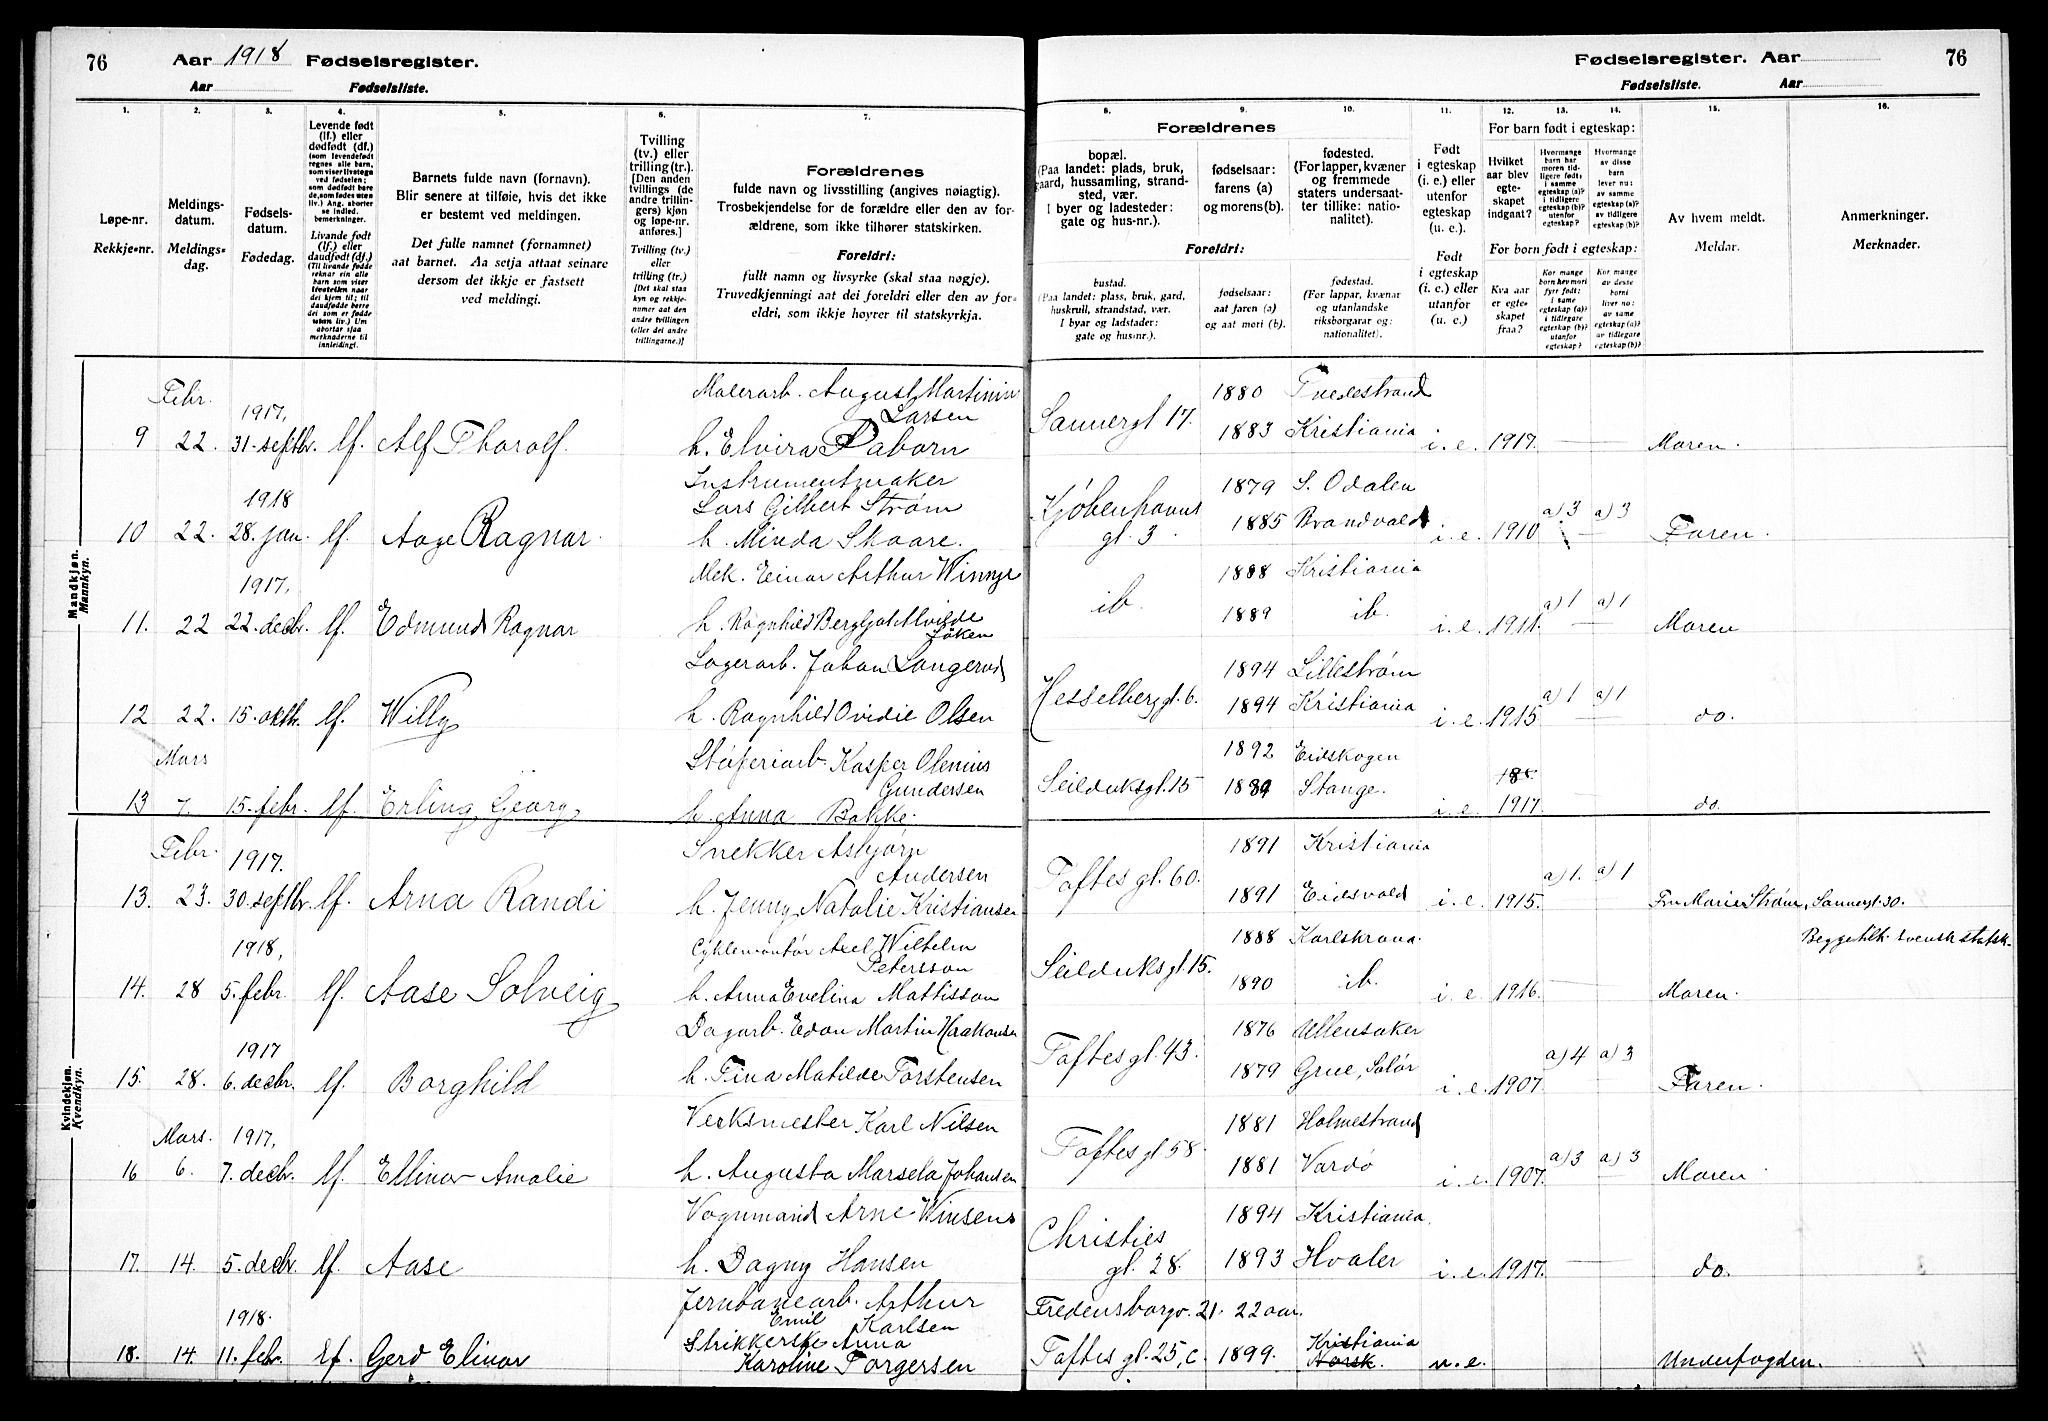 76
Aar 1918 Fødselsregister.
Aar Fødselsliste.
1.
Løpe-nr.
Rekkje-nr.
2.
Meldings-
datum.
Meldings-
dag.
3.
Fødsels-
datum.
Fødedag.
4.
Levende født
(lf.) eller
dødfødt (df.)
(som levendefødt
regnes alle barn,
som viser livstegn
ved fødselen;
som dødfødt bare
de, som fødes uten
liv.) Ang. aborter
se indled.
bemerkninger.
Livande født
(lf.) eller
daudfødt (df.)
5.
Barnets fulde navn (fornavn).
Blir senere at tilføie, hvis det ikke
er bestemt ved meldingen.
Det fulle namnet (fornamnet)
aat barnet. Aa setja attaat seinare
dersom det ikkje er fastsett
ved meldingi.
6.
Tvilling
(tv.) eller
trilling (tr.).
[Den anden
tvillings (de
andre trillin-
gers) kjøn
og løpe-nr.
anføres.]
Tvilling (tv.)
eller
trilling (tr.)
[Det skal staa
kyn og rekkje-
numer aat den
andre tvillingen
(eller dei andre
trillingarne.)]
7.
Forældrenes
fulde navn og livsstilling (angives nøiagtig).
Trosbekjendelse for de forældre eller den av for-
ældrene, som ikke tilhører statskirken.
Foreldri:
fullt namn og livsyrke (skal staa nøgje).
Truvedkjenningi aat dei foreldri eller den av for-
eldri, som ikkje høyrer til statskyrkja.
Fødselsregister. Aar 76
Fødselsliste. Aar
Forældrenes
8.
bopæl.
(Paa landet: plads, bruk,
gaard, hussamling, strand-
sted, vær.
I byer og ladesteder:
gate og hus-nr.).
9.
fødselsaar:
farens (a)
og morens (b).
10.
fødested.
(For lapper, kvæner
og fremmede
staters undersaat-
ter tillike: natio-
nalitet).
Foreldri:
bustad.
(Paa landet: plass, bruk, gard,
huskrull, strandstad, vær.
I byar og ladstader:
gate og hus-nr.).
fødselsaar:
aat faren (a)
og aat mori (b).
fødestad.
(For lappar, kvænar
og utanlandske
riksborgarar og:
nationalitet).
11.
Født
i egteskap
(i. e.) eller
utenfor
egteskap
(u. e.).
Født
i egteskap
(i. e.) eller
utanfor
(u. e.)
For barn født i egteskap:
12.
Hvilket
aar blev
egte-
skapet
indgaat?
13.
Hvormange
barn har
moren tid-
ligere født:
i samme
egteskap (a)?
i tidligere
egteskap (b)?
utenfor
egteskap?
14.
Hvormange
av disse
barn
lever nu:
av samme
egteskap (a)?
av tidligere
egteskap (b)?
For born født i egteskap:
Kva aar
er egte-
skapet
fraa?
Kor mange
born hev mori
fyrr født:
i same
egteskap (a)?
i tidlegare
egteskap (b)?
utanfor
egteskap?
Kor mange
av desse
borni
liver no:
av same
egteskap (a)?
av tidlegare
egteskap (b)?
15.
Av hvem meldt.
Meldar.
16.
Anmerkninger.
Merknader.
Mandkjøn.
Mannkyn.
Febr. 1917, Malerarb. August Martinius Larsen 1880 Tvedestrand
9 22. 31. septbr. lf. Alf Thorolf. h. Elvira Daborn Sannergt 17. 1883 Kristiania i. e. 1917. — — Moren.
1918 Instrumentmaker Lars Gilbert Strøm 1879 S. Odalen
10 22. 28. jan. lf. Aage Ragnar. h. Minda Skaare. Kjøbenhavns gt. 3 1885 Brandvald i. e. 1910 a) 3 a) 3 Faren.
1917, Mek. Einar Arthur Winnge 1888 Kristiania
11. 22 22. decbr. lf. Edmund Ragnar h. Ragnhild Bergljot Alvilde Løken ib. 1889 ib. i. e. 1911. a) 1 a) 1 Moren
Lagerarb. Johan Langerud 1894 Lillestrøm
12 22. 15. oktbr. lf. Willy h. Ragnhild Ovidie Olsen Hesselberggt. 6. 1894 Kristiania i. e. 1915 a) 1 a) 1 do.
Mars Støperiarb. Kasper Olenius Gundersen 1892 Eidskogen
13 7. 15. febr. lf. Erling Georg h. Anna Bakke. Seilduksgt. 15 1889 Stange. i. e. 1917. — do.
Kvindekjøn.
Kvendkyn.
Febr. 1917. Snekker Asbjørn Andersen 1891 Kristiania
13. 23. 30. septbr. lf. Arna Randi h. Jenny Natalie Kristiansen Toftes gt. 60. 1891 Eidsvold i. e. 1915. a) 1. a) 1 Fru Marie Strøm, Sannergt. 30.
1918, Cyklemontør Axel Wilhelm Petersson 1888 Karlskrona. Begge tilh. svensk statsk.
14. 28 5. febr. lf. Aase Solveig h. Anna Evelina Mattisson Seilduksgt. 15. 1890 ib. i. e. 1916. — Moren.
1917 Dagarb. Edon Martin Haakonsen 1876 Ullensaker
15. 28. 6. decbr. lf. Borghild h. Tina Matilde Torstensen Toftes gt. 43. 1879 Grue, Solør i. e. 1907. a) 4 a) 3 Faren.
Mars. 1917, Verksmester Karl Nilsen 1881 Holmestrand
16 6. 7. decbr. lf. Ellinor Amalie h. Augusta Marsela Johansen Toftes gt 58. 1881 Vardø i. e. 1907. a) 3 a) 3 Moren
Vognmand Arne Winsens 1894 Kristiania.
17. 14. 5. decbr. lf. Aase h. Dagny Hansen Christies gt. 28. 1893 Hvaler i. e. 1917. — do.
1918. Jernbanearb. Arthur Emil Karlsen Fredensborgv. 21. 22 aar.
18. 14. 11. febr. Lf. Gerd Elinor Strikkerske Anna Karoline Torgersen Toftes gt. 25, c. 1899. Kristiania Norsk. u. e. Underfogden.